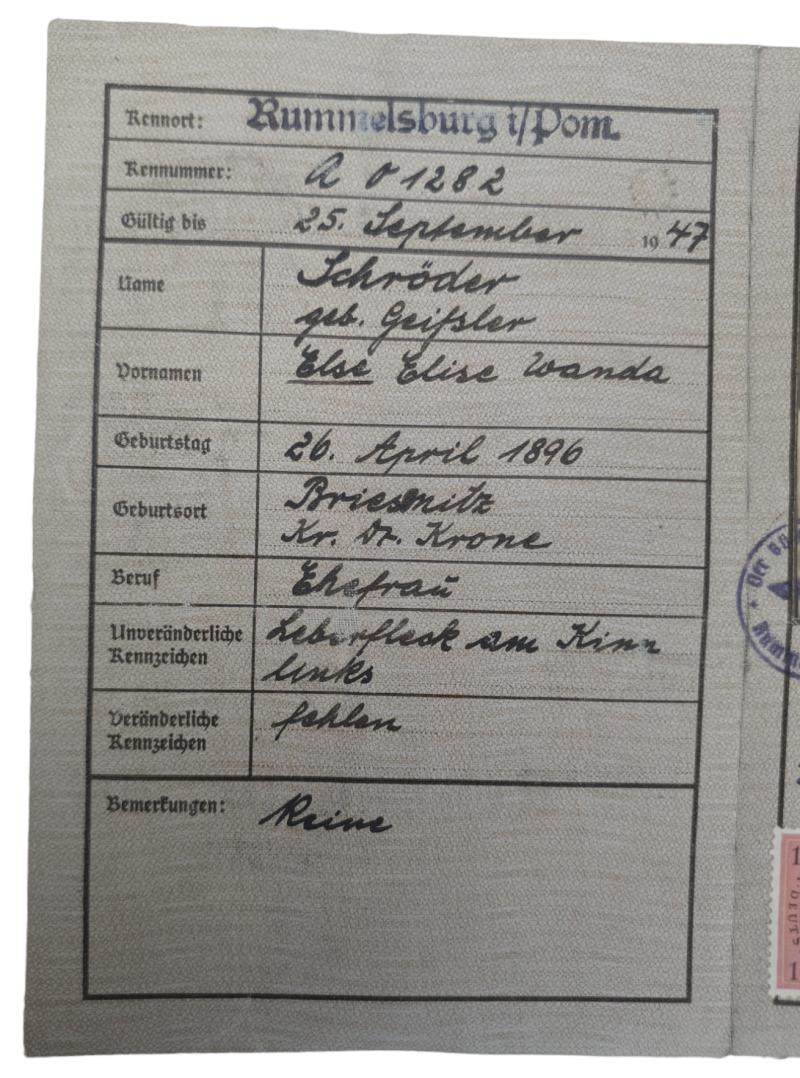 Kennort: Rummelsburg i/Pom.
Kennummer: A 01282
Gültig bis 25. September 1947
Name Schröder
geb. Geißler
Vornamen Else Elise Wanda
Geburtstag 26. April 1896
Geburtsort Briesenitz
Kr. Dt. Krone
Beruf Ehefrau
Unveränderliche Kennzeichen Leberfleck am Kinn
links
Veränderliche Kennzeichen fehlen
Bemerkungen: Keine
Der Bü
Rumm
1
DEUTS
1